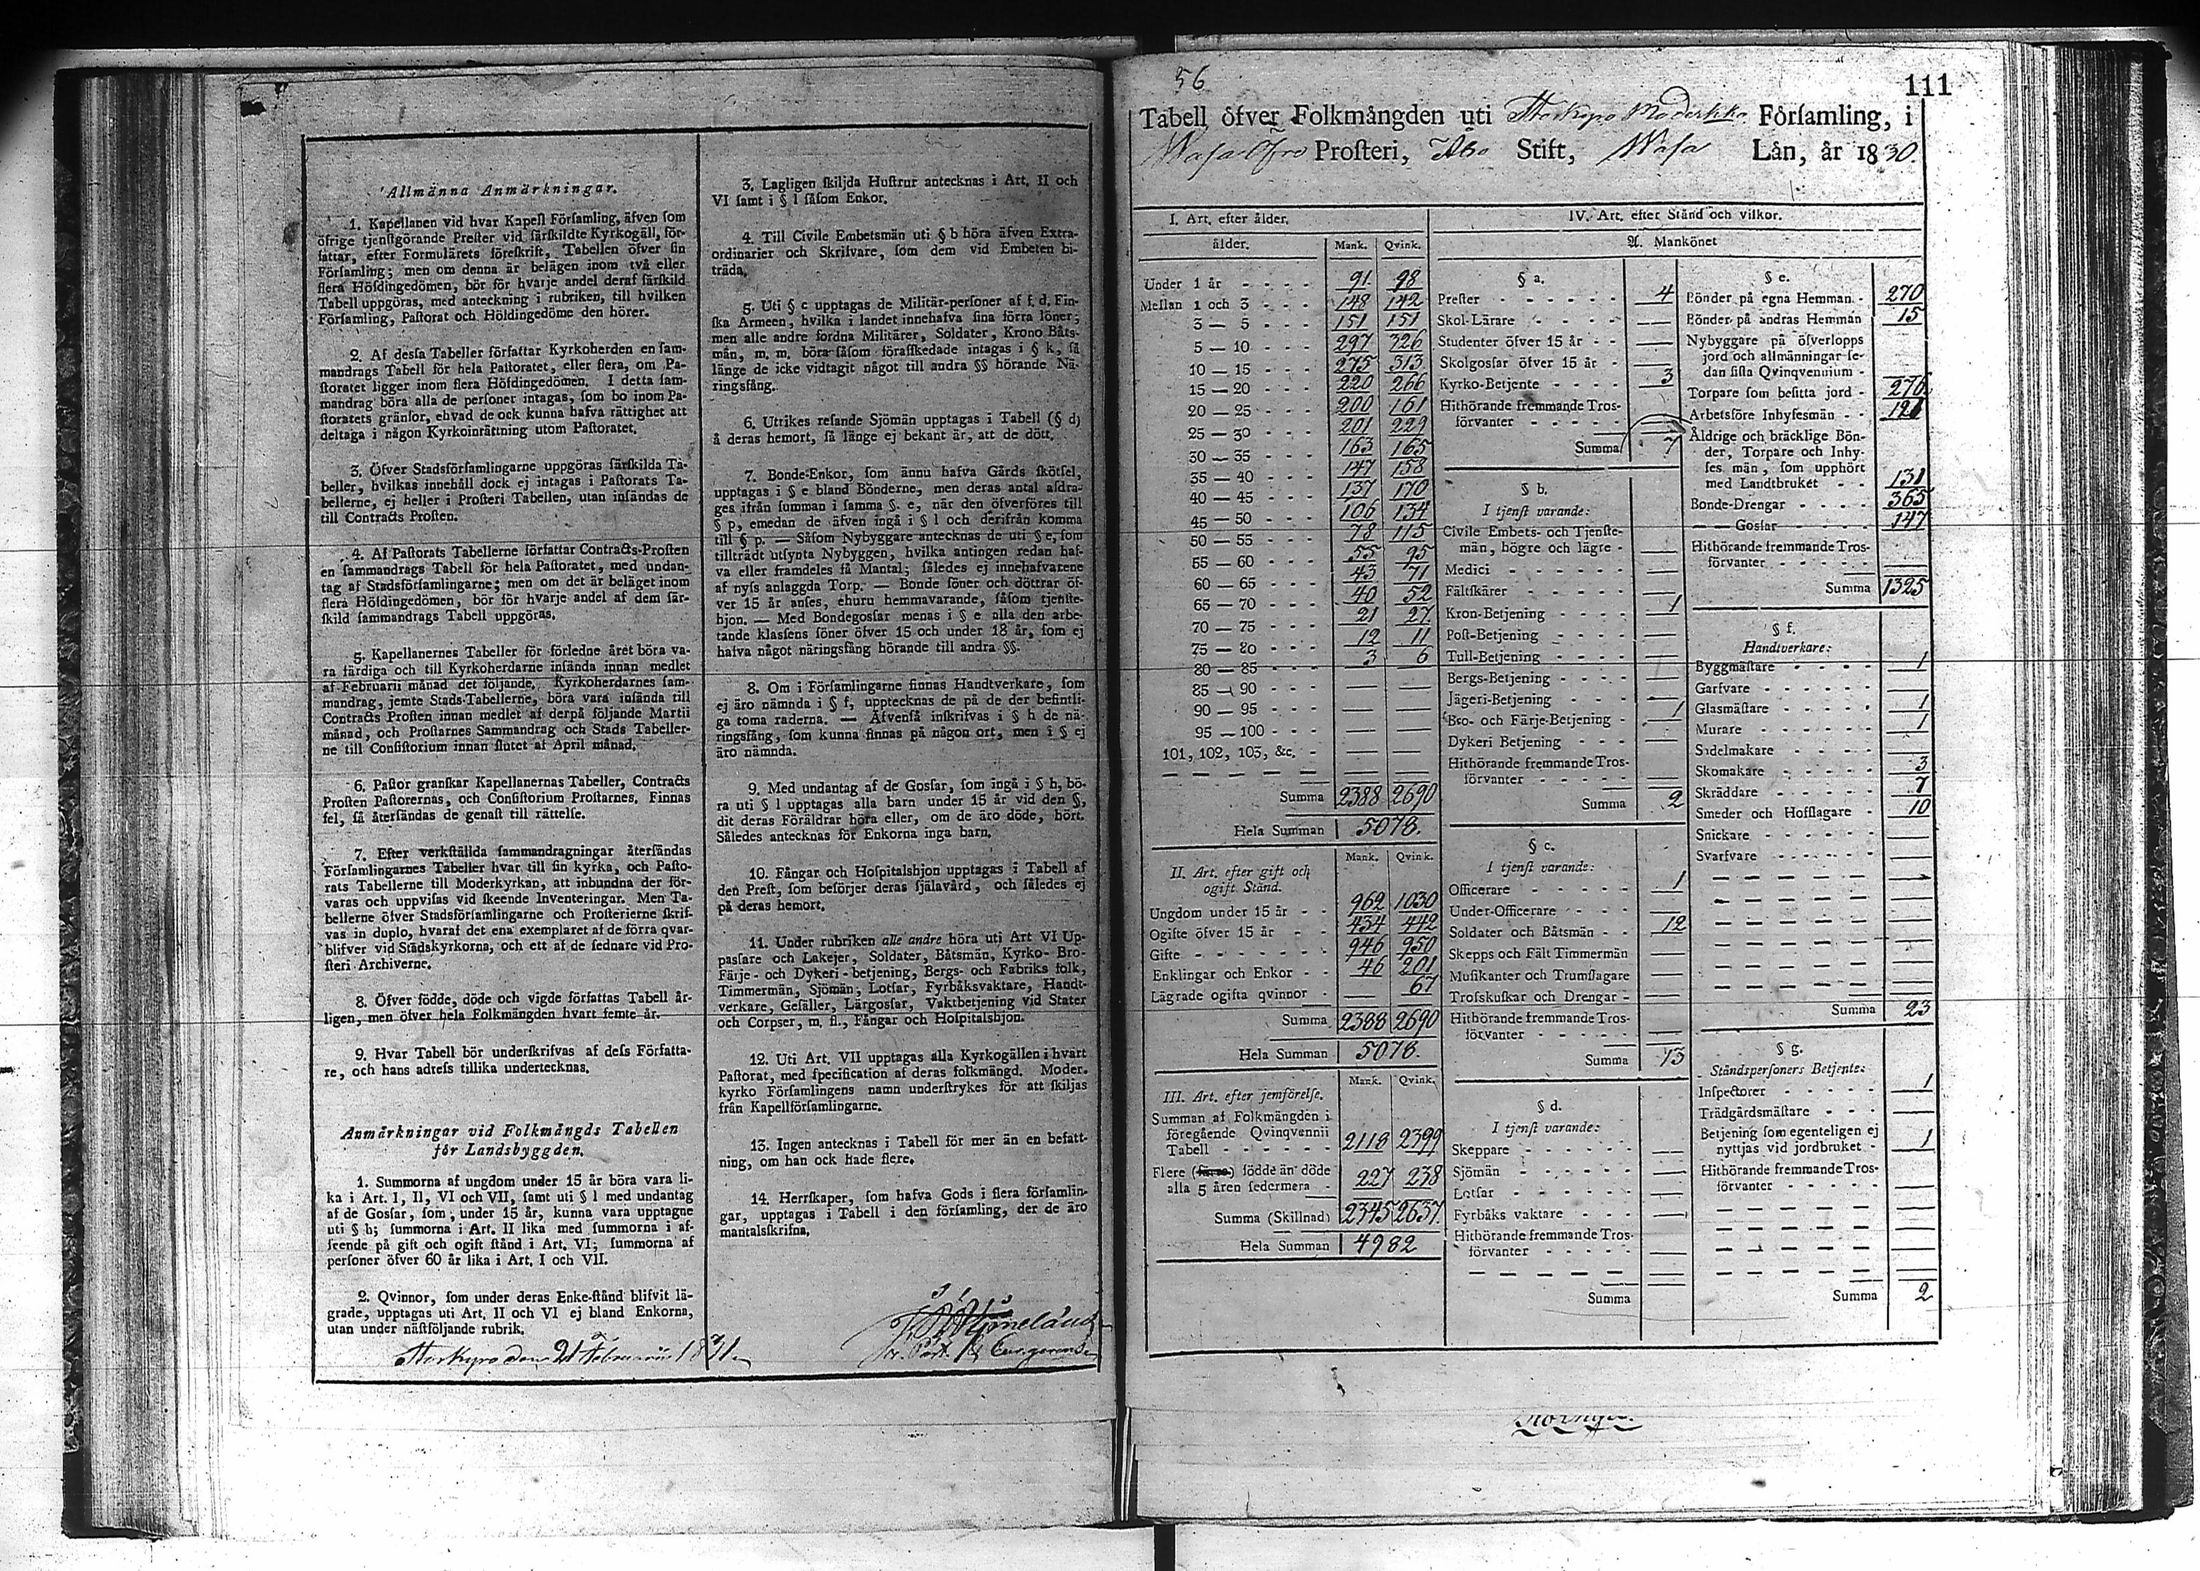 Allmänna Anmärkningar.
1. Kapellanen vid hvar Kapell Församling, äfven som
öfrige tjenstgörande Prester vid särskildte Kyrkogäll, för-
fattar, efter Formulärets föreskrift, Tabellen öfver sin
Församling; men om denna är belägen inom två eller
flera Höfdingedömen, bör för hvarje andel deraf särskild
Tabell uppgöras, med anteckning i rubriken, till hvilken
Församling, Pastorat och Höfdingedöme den hörer.
2. Af dessa Tabeller författar Kyrkoherden en sam-
mandrags Tabell för hela Pastoratet, eller flera, om Pa-
storatet ligger inom flera Höfdingedömen. I detta sam-
mandrag böra alla de personer intagas, som bo inom Pa-
storatets gränsor, ehvad de ock kunna hafva rättighet att
deltaga i någon Kyrkoinrättning utom Pastoratet.
3. Öfver Stadsförsamlingarne uppgöras särskilda Ta-
beller, hvilkas innehåll dock ej intagas i Pastorats Ta-
bellerne, ej heller i Prosteri Tabellen, utan insändas de
till Contracts Prosten.
4. Af Pastorats Tabellerne författar Contracts-Prosten
en sammandrags Tabell för hela Pastoratet, med undan-
tag af Stadsförsamlingarne; men om det är beläget inom
flera Höfdingedömen, bör för hvarje andel af dem sär-
skild sammandrags Tabell uppgöras.
5. Kapellanernes Tabeller för förledne året böra va-
ra färdiga och till Kyrkoherdarne insända innan medlet
af Februarii månad det följande. Kyrkoherdarnes sam-
mandrag, jemte Stads-Tabellerne, böra vara insända till
Contracts Prosten innan medlet af derpå följande Martii
månad, och Prostarnes Sammandrag och Stads Tabeller-
ne till Consistorium innan slutet af April månad.
6. Pastor granskar Kapellanernas Tabeller, Contracts
Prosten Pastorernas, och Consistorium Prostarnes. Finnas
fel, så återsändas de genast till rättelse.
7. Efter verkställda sammandragningar återsändas
Församlingarnes Tabeller hvar till sin kyrka, och Pasto-
rats Tabellerne till Moderkyrkan, att inbundna der för-
varas och uppvisas vid skeende Inventeringar. Men Ta-
bellerne öfver Stadsförsamlingarne och Prosterierne skrif-
vas in duplo, hvaraf det ena exemplaret af de förra qvar-
blifver vid Stadskyrkorna, och ett af de sednare vid Pro-
steri Archiverne.
8. Öfver födde, döde och vigde författas Tabell år-
ligen, men öfver hela Folkmängden hvart femte år.
9. Hvar Tabell bör underskrifvas af dess Författa-
re, och hans adress tillika undertecknas.
Anmärkningar vid Folkmängds Tabellen
för Landsbyggden.
1. Summorna af ungdom under 15 år böra vara li-
ka i Art. I, II, VI och VII, samt uti § l med undantag
af de Gossar, som, under 15 år, kunna vara upptagne
uti § h; summorna i Art. II lika med summorna i af-
seende på gift och ogift stånd i Art. VI; summorna af
personer öfver 60 år lika i Art. I och VII.
2. Qvinnor, som under deras Enke-stånd blifvit lä-
grade, upptagas uti Art. II och VI ej bland Enkorna,
utan under nästföljande rubrik.
Storkyro den 21 Februarii 1831
3. Lagligen skiljda Hustrur antecknas i Art. II och
VI samt i § l såsom Enkor.
4. Till Civile Embetsmän uti § b höra äfven Extra-
ordinarier och Skrifvare, som dem vid Embeten bi-
träda.
5. Uti § c upptagas de Militär-personer af f. d. Fin-
ska Armeen, hvilka i landet innehafva sina förra löner;
men alle andre fordna Militärer, Soldater, Krono Båts-
män, m. m. böra såsom förafskedade intagas i § k, så
länge de icke vidtagit något till andra §§ hörande Nä-
ringsfång.
6. Utrikes resande Sjömän upptagas i Tabell (§ d)
å deras hemort, så länge ej bekant är, att de dött.
7. Bonde-Enkor, som ännu hafva Gårds skötsel,
upptagas i § e bland Bönderne, men deras antal afdra-
ges ifrån summan i samma §. e, när den öfverföres till
§ p, emedan de äfven ingå i § l och derifrån komma
till § p. — Såsom Nybyggare antecknas de uti § e, som
tillträdt utsynta Nybyggen, hvilka antingen redan haf-
va eller framdeles få Mantal; således ej innehafvarene
af nyss anlaggda Torp. — Bonde söner och döttrar öf-
ver 15 år anses, ehuru hemmavarande, såsom tjenste-
hjon. — Med Bondegossar menas i § e alla den arbe-
tande klassens söner öfver 15 och under 18 år, som ej
hafva något näringsfång hörande till andra §§.
8. Om i Församlingarne finnas Handtverkare, som
ej äro nämnda i § f, upptecknas de på de der befintli-
ga toma raderna. — Äfvenså inskrifvas i § h de nä-
ringsfång, som kunna finnas på någon ort, men i § ej
äro nämnda.
9. Med undantag af de Gossar, som ingå i § h, bö-
ra uti § l upptagas alla barn under 15 år vid den §,
dit deras Föräldrar höra eller, om de äro döde, hört.
Således antecknas för Enkorna inga barn.
10. Fångar och Hospitalshjon upptagas i Tabell af
den Prest, som besörjer deras själavård, och således ej
på deras hemort.
11. Under rubriken alle andre höra uti Art VI Up-
passare och Lakejer, Soldater, Båtsmän, Kyrko- Bro-
Färje- och Dykeri-betjening, Bergs- och Fabriks folk,
Timmermän, Sjömän, Lotsar, Fyrbåksvaktare, Handt-
verkare, Gesäller, Lärgossar, Vaktbetjening vid Stater
och Corpser, m. fl., Fångar och Hospitalshjon.
12. Uti Art. VII upptagas alla Kyrkogällen i hvart
Pastorat, med specification af deras folkmängd. Moder-
kyrko Församlingens namn understrykes för att skiljas
från Kapellförsamlingarne.
13. Ingen antecknas i Tabell för mer än en befatt-
ning, om han ock hade flere.
14. Herrskaper, som hafva Gods i flera församlin-
gar, upptagas i Tabell i den församling, der de äro
mantalsskrifna.
56
111
Tabell öfver Folkmängden uti Storkyro Moderkko Församling, i
Wasa Öfre Prosteri, Åbo Stift, Wasa Län, år 1830.
I. Art. efter ålder.
ålder. Mank. Qvink.
Under 1 år - - - - 91 98
Mellan 1 och 3 - - - 148 142
3 — 5 - - - 151 151
5 — 10 - - - 297 326
10 — 15 - - - 275 313
15 — 20 - - - 220 266
20 — 25 - - - 200 161
25 — 30 - - - 201 229
30 — 35 - - - 163 165
35 — 40 - - - 147 158
40 — 45 - - - 137 170
45 — 50 - - - 106 134
50 — 55 - - - 78 115
55 — 60 - - - 55 95
60 — 65 - - - 43 71
65 — 70 - - - 40 52
70 — 75 - - - 21 27
75 — 80 - - - 12 11
80 — 85 - - - 3 6
85 — 90 - - - — —
90 — 95 - - - — —
95 — 100 - - - — —
101, 102, 103, &c. - — —
Summa 2388 2690
Hela Summan 5078.
Mank. Qvink.
II. Art. efter gift och
ogift Stånd.
Ungdom under 15 år - - 962 1030
Ogifte öfver 15 år - - 434 442
Gifte - - - - - - 946 950
Enklingar och Enkor - - 46 201
Lägrade ogifta qvinnor - — 67
Summa 2388 2690
Hela Summan 5078.
Mank. Qvink.
III. Art. efter jemförelse.
Summan af Folkmängden i
föregående Qvinqvennii
Tabell - - - - - 2118 2399
Flere (färre) födde än döde
alla 5 åren sedermera - 227 238
Summa (Skillnad) 2345 2637.
Hela Summan 4982
IV. Art. efter Stånd och vilkor.
A. Mankönet
§ a.
Prester - - - - - - 4
Skol-Lärare - - - - - —
Studenter öfver 15 år - - —
Skolgossar öfver 15 år - —
Kyrko-Betjente - - - - 3
Hithörande fremmande Tros-
förvanter - - - - - —
Summa 7
§ b.
I tjenst varande:
Civile Embets- och Tjenste-
män, högre och lägre - —
Medici - - - - - - —
Fältskärer - - - - - —
Kron-Betjening - - - - 1
Post-Betjening - - - - —
Tull-Betjening - - - - —
Bergs-Betjening - - - - —
Jägeri-Betjening - - - —
Bro- och Färje-Betjening - 1
Dykeri Betjening - - - —
Hithörande fremmande Tros-
förvanter - - - - - —
Summa 2
§ c.
I tjenst varande:
Officerare - - - - - 1
Under-Officerare - - - —
Soldater och Båtsmän - - 12
Skepps och Fält Timmermän —
Musikanter och Trumslagare —
Trosskuskar och Drengar - —
Hithörande fremmande Tros-
förvanter - - - - —
Summa 13
§ d.
I tjenst varande:
Skeppare - - - - - —
Sjömän - - - - - - —
Lotsar - - - - - - —
Fyrbåks vaktare - - - —
Hithörande fremmande Tros-
förvanter - - - - - —
Summa
§ e.
Bönder på egna Hemman - 270
Bönder på andras Hemman 15
Nybyggare på öfverlopps
jord och allmänningar se-
dan sista Qvinqvennium - —
Torpare som besitta jord - 276
Arbetsföre Inhysesmän - -
Åldrige och bräcklige Bön-
der, Torpare och Inhy-
ses män, som upphört
med Landtbruket - - 131
Bonde-Drengar - - - - 365
— — Gossar - - - - 147
Hithörande fremmande Tros-
förvanter - - - - - —
Summa 1325
§ f.
Handtverkare:
Byggmästare - - - - - 1
Garfvare - - - - - - —
Glasmästare - - - - - 1
Murare - - - - - - 1
Sadelmakare - - - - - —
Skomakare - - - - - 3
Skräddare - - - - - 7
Smeder och Hofslagare - 10
Snickare - - - - - - —
Svarfvare - - - - - —
Summa 23
§ g.
Ståndspersoners Betjente:
Inspectorer - - - - - 1
Trädgårdsmästare - - - —
Betjening som egenteligen ej
nyttjas vid jordbruket - 1
Hithörande fremmande Tros-
förvanter - - - - - —
Summa 2